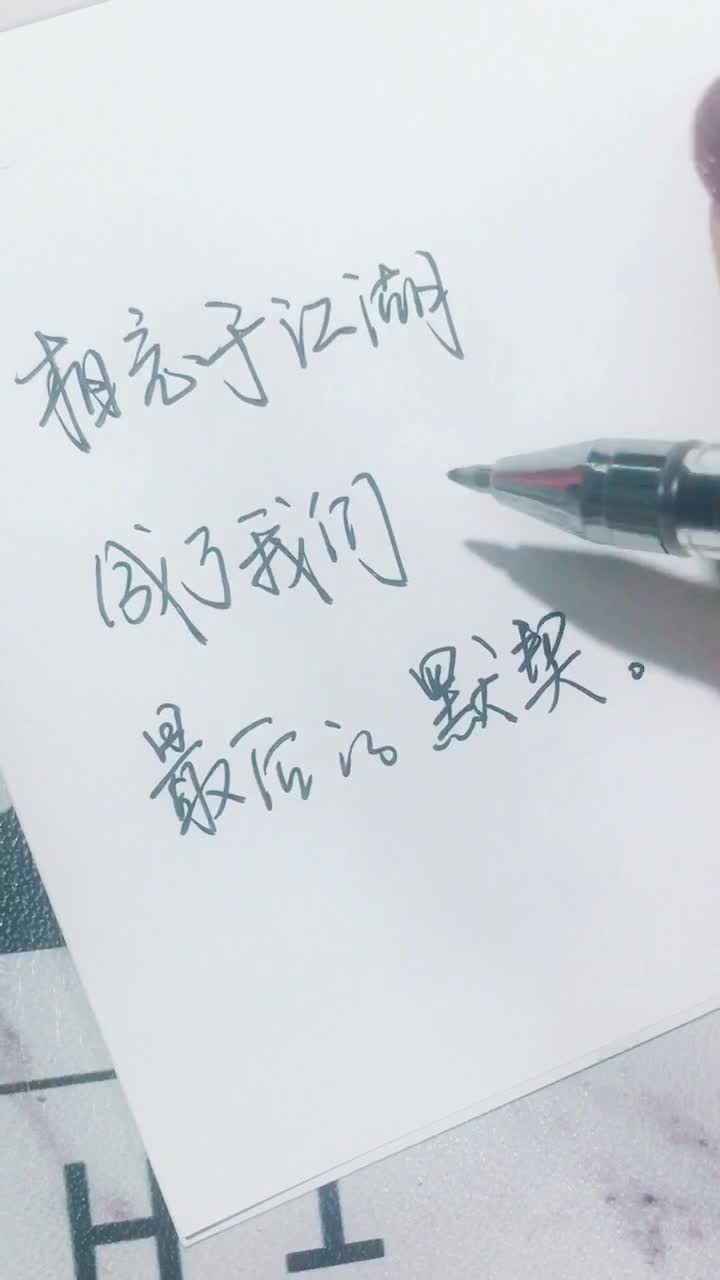 相忘于江湖
成了我们
最后的默契。
H I